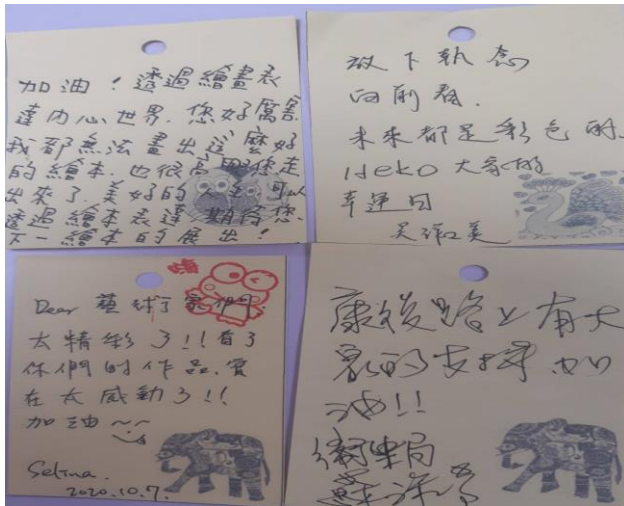 加油！透過繪畫表
達內心世界．您好厲害．
我都無法畫出這麼好
的繪本．也很高興您走
出來了．美好的一 可以
透過繪本表達．期待您
下一繪本的展出！
放下執念
向前看．
未來都是彩色的．
Heko 大家的
幸運日
吳
美
Dear 藝術家們
太精彩了!!看了
你們的作品．實
在太感動了!!
加油～～
Selina.
2020.10.7.
康復路上有大
家的支持 加
油!!
衛生局
蘇